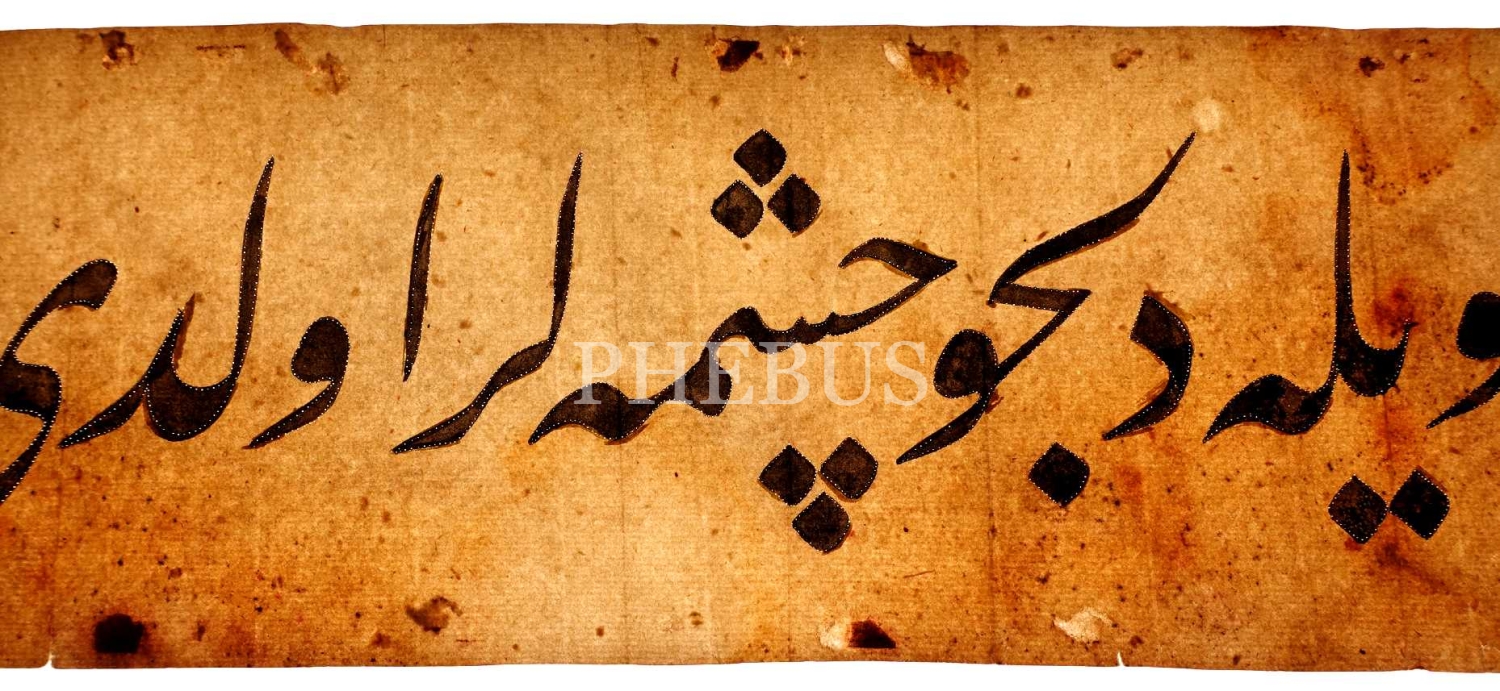 ویله دلجو چشمه لر اولدی
PHEBUS